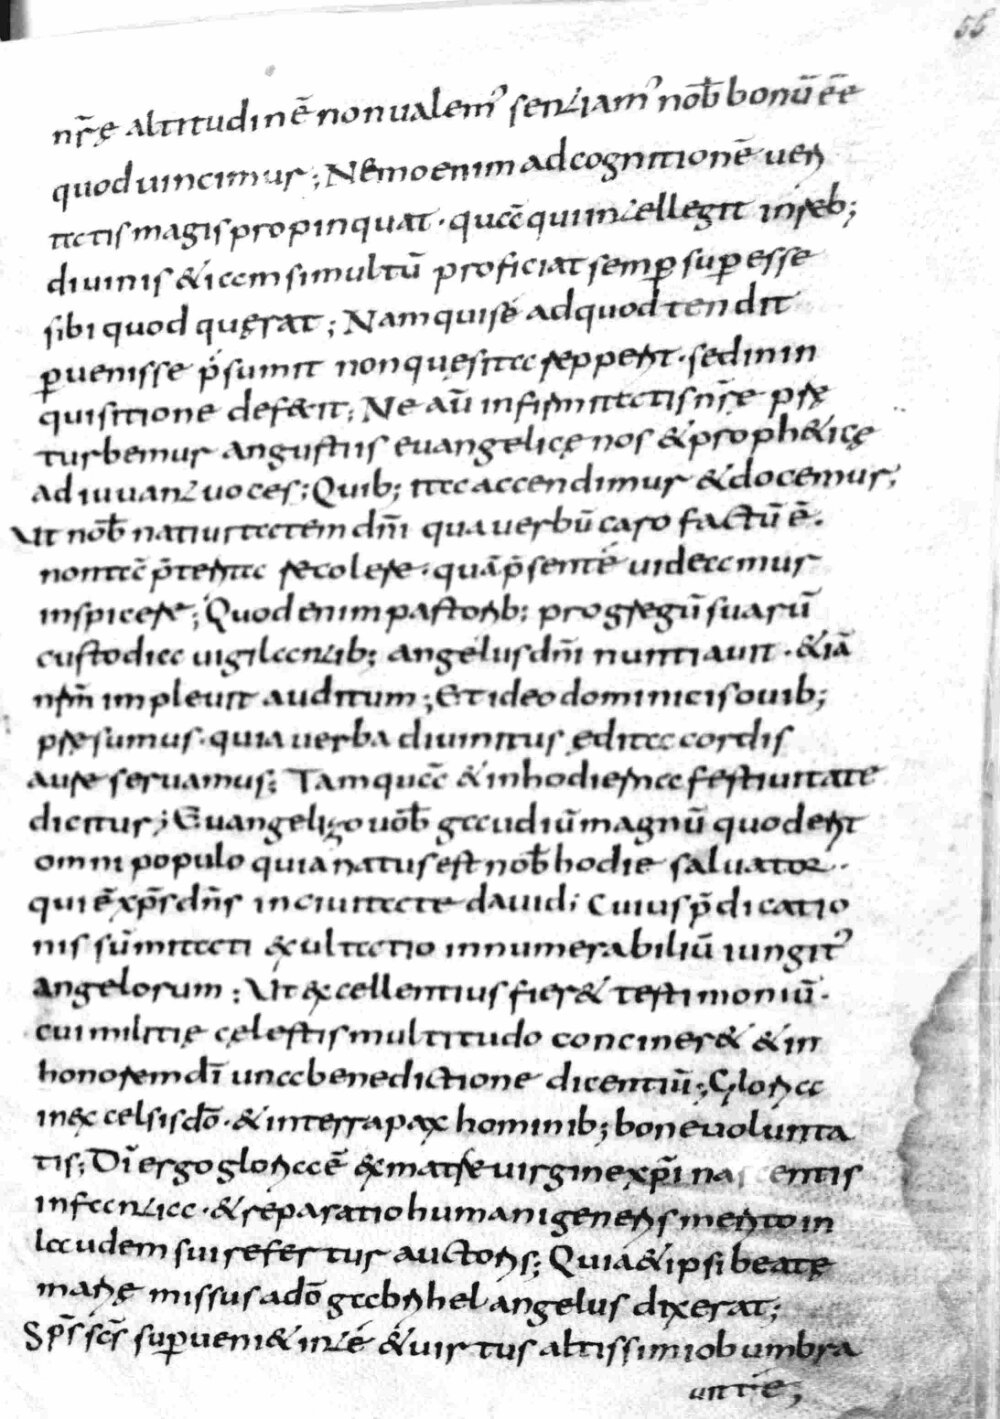 55
nr̄ę altitudinē nonualem᾽ sentiam᾽ nob̄ bonū ēē
quoduincimur; Nemoenim adcognitionē ueri
tatis magis propinquat · quā quiintellegit inreb;
diuinis &iam simultū proficiat semp̱ sup̱esse
sibi quod quęrat; Nam quisé adquod tendit
p̱uenisse p̄sumit nonquęsita repperit · sedinin
quisitione defecit; Ne aū infirmitatis nr̄ę pre
turbemur angustiis euangelicę nos &proph&icę
adiuuant uoces; Quib; ita accendimur &docemur;
Ut nob̄ natiuitatem dn̄i qua uerbū caro factū ē.
nontā p̄terita recolere · quā p̄sente uideamur
inspicere; Quodenim pastorib; progregū suarū
custodia uigilantib; angelus dn̄i nuntiauit · &iā
nr̄m impleuit auditum; Et ideo dominicis ouib;
pręsumus · quia uerba diuinitus ędita cordis
aure seruamus; Tamquā &inhodierna festiuitate
dicitur; Euangelizo uob̄ gaudiū magnū quod erit
omni populo quia natus est nob̄ hodie saluator ··
qui ē xp̄s dn̄s inciuitate dauid; Cuius p̄dicatio
nis sūmitati exultatio innumerabiliū iungit᾽
angelorum; Ut excellentius fier& testimoniū ·
cui militię cęlestis multitudo conciner& &in
honorem dī una benedictione dicentiū; Gloria
inexcelsis dō · &interra pax hominib; bonę uolunta
tis; Dī ergo gloria ē ex matre uirgine xp̄i nascentis
infantia · &reparatio humani generis merito in
laudem sui refertur auctoris; Quia &ipsi beatę
marię missus adō gabrihel angelus dixerat;
Sp̄s sc̄s sup̱ueni& inté &uirtus altissimi obumbra